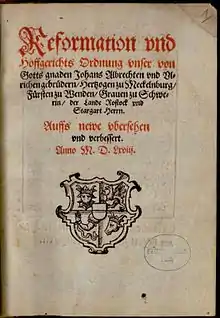 Reformation vnd
Hoffgerichts Ordnung vnser von
Gotts gnaden Johans Albrechten vnd Vl-
richen gebrüdern/ Hertzogen zu Meckelnburg/
Fürsten zu Wenden/ Grauen zu Schwe-
rin/ der Lande Rostock vnd
Stargart Herrn.
Auffs newe vbersehen
vnd verbessert.
Anno M. D. Lxviij.